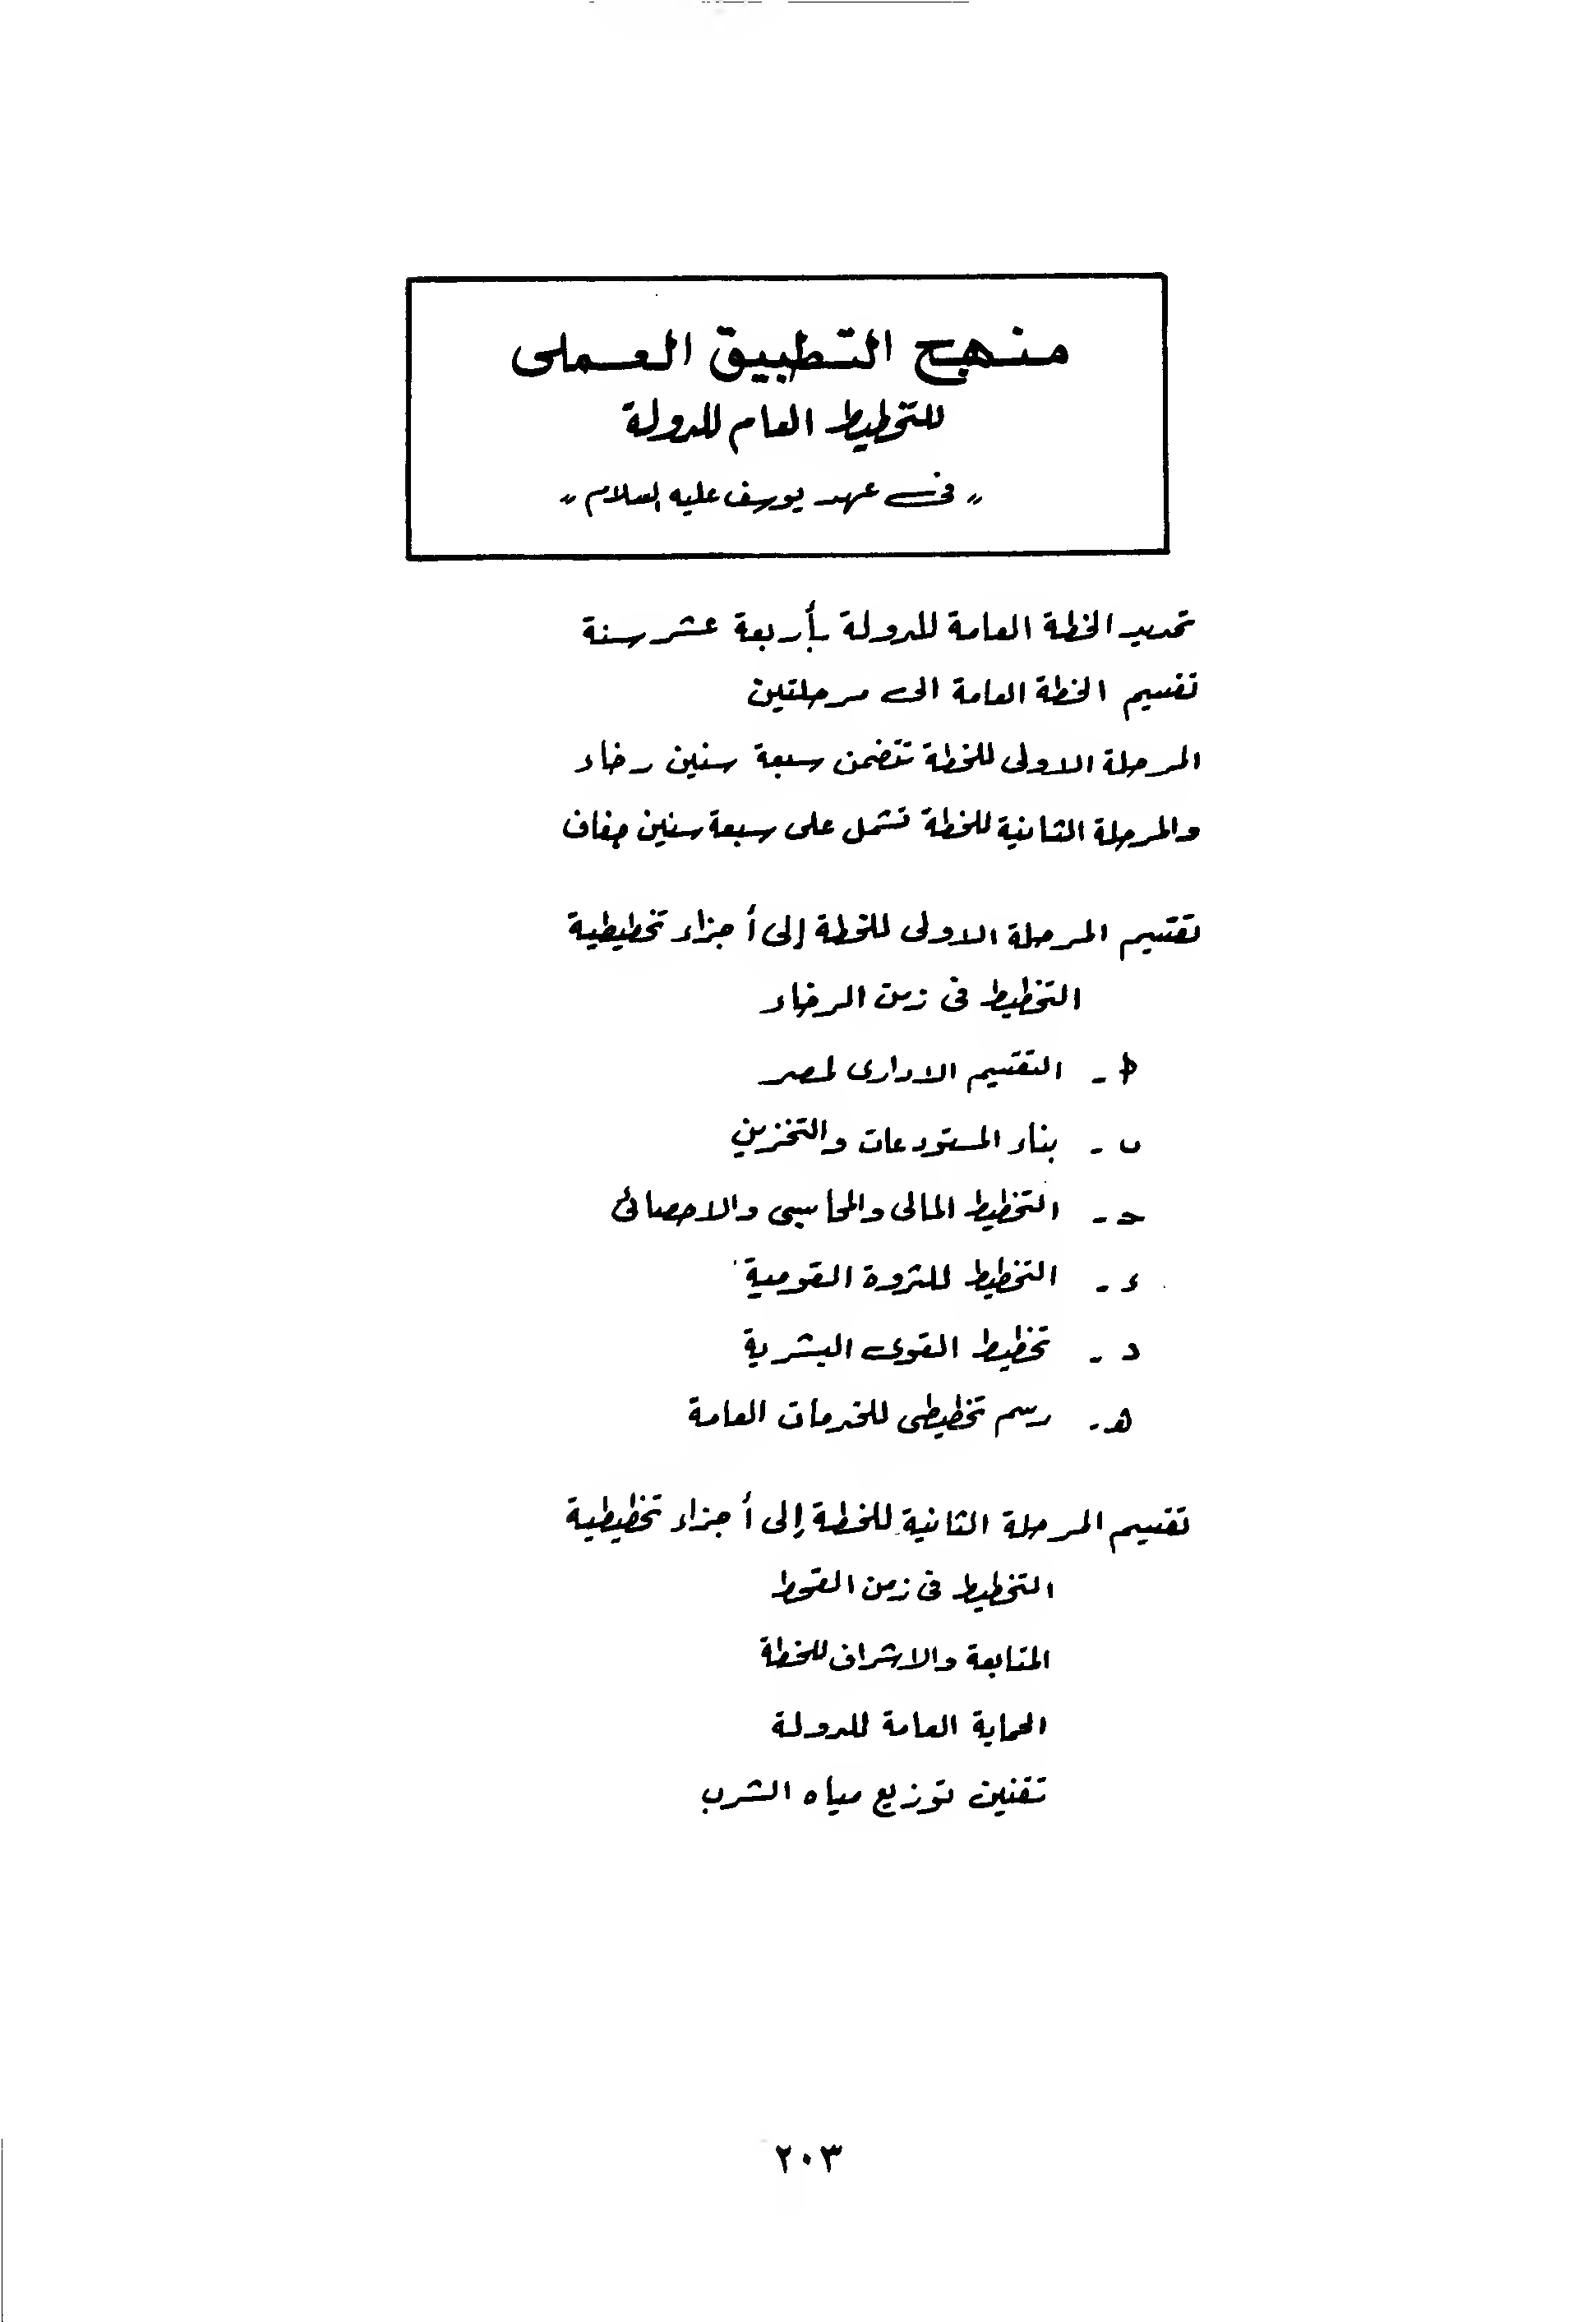 منهج التطبيق العملى
للتخطيط العام للدولة
"فى عهد يوسف عليه السلام"
تحديد الخطة العامة للدولة بأربعة عشر سنة
تقسيم الخطة العامة الى مرحلتين
المرحلة الاولى للخطة تتضمن سبعة سنين رخاء
والمرحلة الثانية للخطة تشمل على سبعة سنين جفاف
تقسيم المرحلة الاولى للخطة إلى أجزاء تخطيطية
التخطيط فى زمن الرخاء
أ - التقسيم الادارى لمصر
ب - بناء المستودعات والتخزين
حـ - التخطيط المالى والمحاسبى والاحصائى
ء - التخطيط للثروة القومية
د - تخطيط القوى البشرية
هـ - رسم تخطيطى للخدمات العامة
تقسيم المرحلة الثانية للخطة إلى أجزاء تخطيطية
التخطيط فى زمن القحط
المتابعة والاشراف للخطة
الحماية العامة للدولة
تقنين توزيع مياه الشرب
٢٠٣